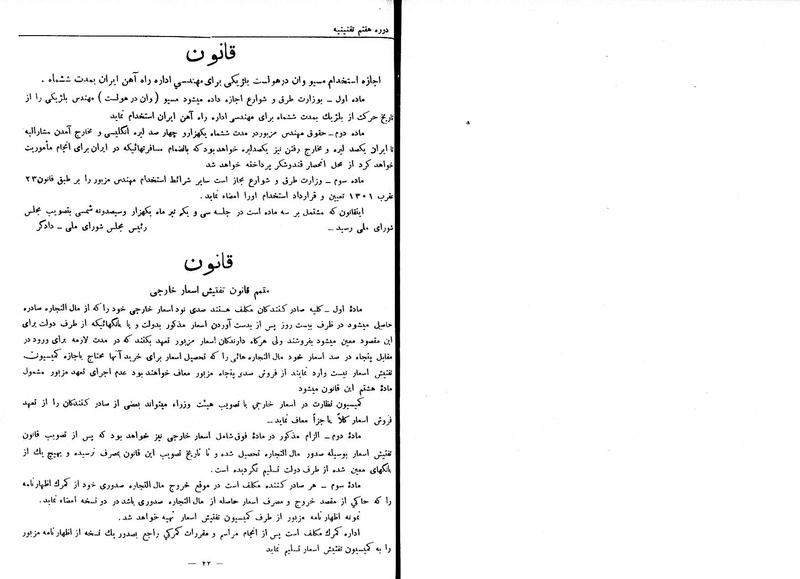 دوره هفتم تقنینیه
قانون
اجازه استخدام مسیو وان درهولست بلژیکی برای مهندسی اداره راه آهن ایران بمدت ششماه .
ماده اول – بوزارت طرق و شوارع اجازه داده میشود مسیو ( وان درهولست ) مهندس بلژیکی را از
تاریخ حرکت از بلژیك بمدت ششماه برای مهندسی اداره راه آهن ایران استخدام نماید
ماده دوم – حقوق مهندس مزبور در مدت ششماه یکهزارو چهار صد لیره انگلیسی و مخارج آمدن مشارالیه
تا ایران یکصد لیره و مخارج رفتن نیز یکصدلیره خواهدبود که بالضمام مسافرتهائیکه در ایران برای انجام مأموریت
خواهد کرد از محل انحصار قندوشکر پرداخته خواهد شد
ماده سوم – وزارت طرق و شوارع مجاز است سایر شرائط استخدام مهندس مزبور را بر طبق قانون ۲۳
عقرب ۱۳۰۱ تعیین و قرارداد استخدام اورا امضاء نماید .
اینقانون که مشتمل بر سه ماده است در جلسه سی و یکم تیر ماه یکهزار وسیصدونه شمسی بتصویب مجلس
شورای ملی رسید – رئیس مجلس شورای ملی – دادگر
قانون
متمم قانون تفتیش اسعار خارجی
مادهٔ اول – کلیه صادر کنندگان مکلف هستند صدی نود اسعار خارجی خود را که از مال التجاره صادره
حاصل میشود در ظرف بیست روز پس از بدست آوردن اسعار مذکور بدولت و یا بانکهائیکه از طرف دولت برای
این مقصود معین میشود بفروشند ولی هرگاه دارندگان اسعار مزبور تعهد بکنند که در مدت لازمه برای ورود در
مقابل پنجاه در صد اسعار خود مال التجاره هائی را که تحصیل اسعار برای خرید آنها محتاج باجازه کمیسیون
تفتیش اسعار نیست وارد نمایند از فروش صدی پنجاه مزبور معاف خواهند بود عدم اجرای تعهد مزبور مشمول
مادهٔ هشتم این قانون میشود
کمیسیون نظارت در اسعار خارجی با تصویب هیئت وزراء میتواند بعضی از صادر کنندگان را از تعهد
فروش اسعار کلاً یا جزاً معاف نماید –
ماده دوم – الزام مذکور در مادهٔ فوق شامل اسعار خارجی نیز خواهد بود که پس از تصویب قانون
تفتیش اسعار بوسیله صدور مال التجاره تحصیل شده و تا تاریخ تصویب این قانون بمصرف نرسیده و بهیچ یك از
بانکهای معین شده از طرف دولت تسلیم نگردیده است .
مادهٔ سوم – هر صادر کننده مکلف است در موقع خروج مال التجاره صدوری خود از گمرك اظهارنامه
را که حاکی از مقصد خروج و مصرف اسعار حاصله از مال التجاره صدوری باشد در دو نسخه امضاء نماید.
نمونه اظهار نامه مزبور از طرف کمیسیون تفتیش اسعار تهیه خواهد شد.
اداره گمرك مکلف است پس از انجام مراسم و مقررات گمرکی راجع بصدور یك نسخه از اظهارنامه مزبور
را به کمیسیون تفتیش اسعار تسلیم نماید
– ۲۲ –